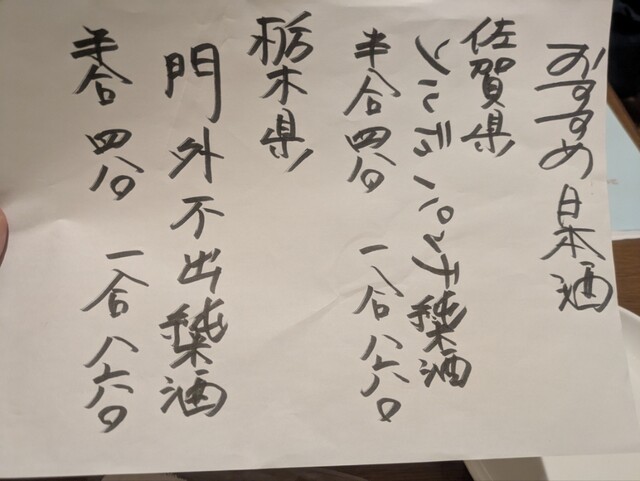 おすすめ 日本酒
佐賀県
パンチ 純米酒
半合 四八〇 一合 八六〇
栃木県
門外不出 純米酒
半合 四八〇 一合 八六〇